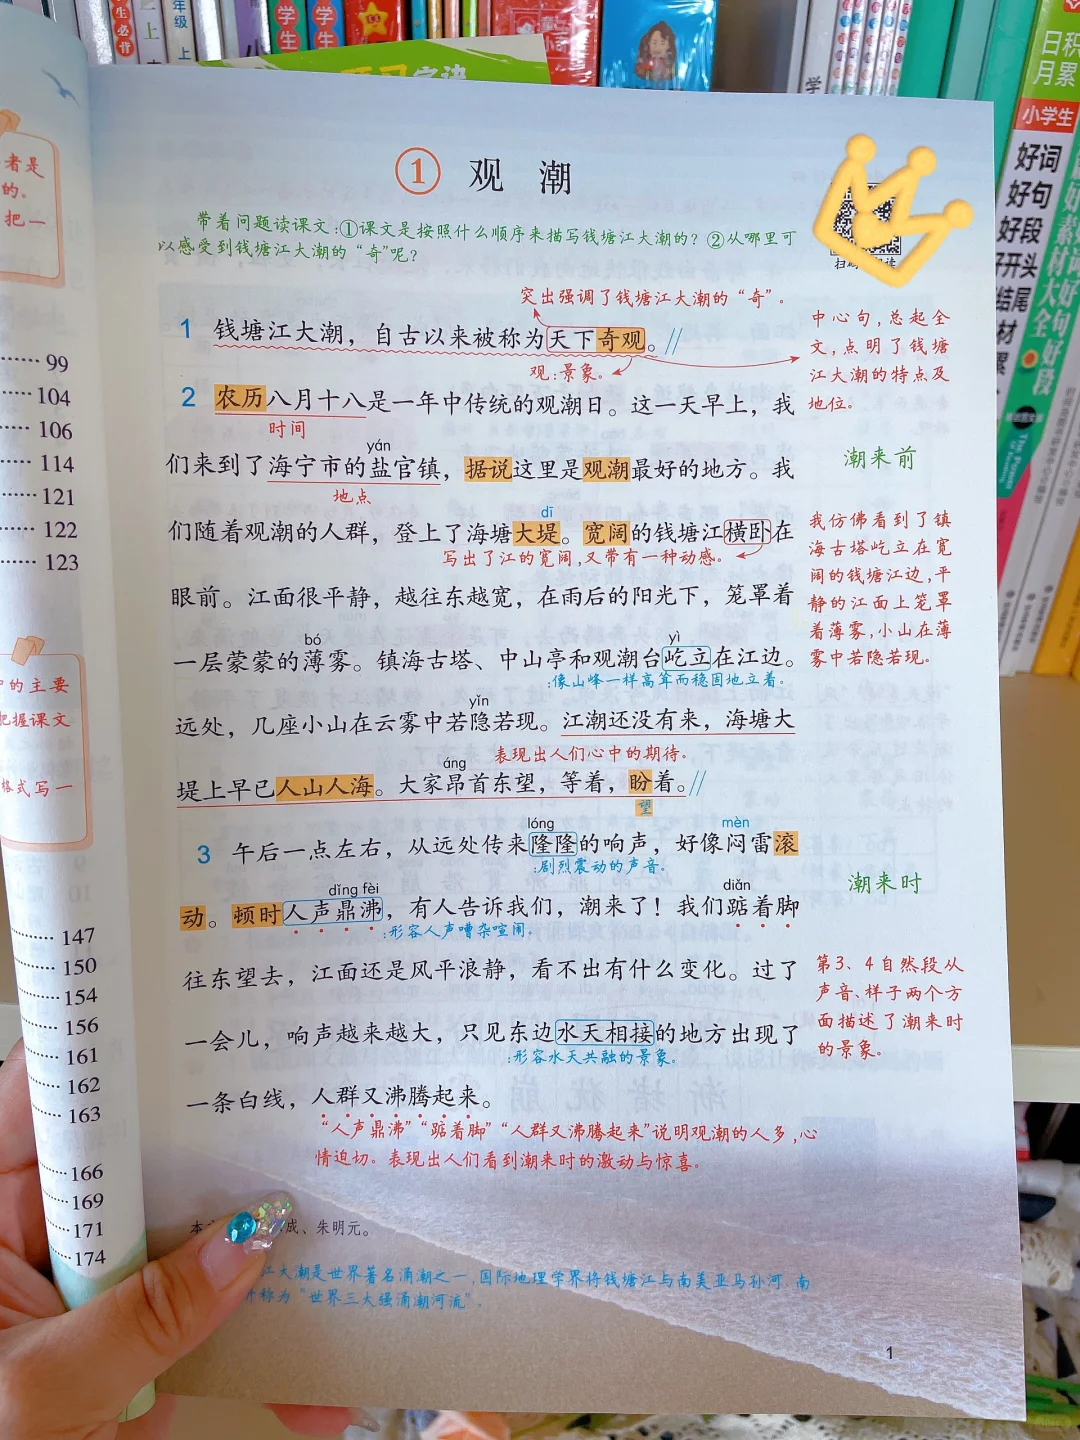 日积
月累
小学生
好词
好句
好段
好开头
者是
的。
把一
99
104
106
114
121
122
123
中的主要
把握课文
格式写一
147
150
154
156
161
162
163
166
169
171
174
① 观 潮
带着问题读课文:①课文是按照什么顺序来描写钱塘江大潮的?②从哪里可
以感受到钱塘江大潮的“奇”呢?
突出强调了钱塘江大潮的“奇”。
1 钱塘江大潮，自古以来被称为天下奇观。//
观:景象。
中心句,总起全
文,点明了钱塘
江大潮的特点及
地位。
2 农历八月十八是一年中传统的观潮日。这一天早上，我
时间
yán
们来到了海宁市的盐官镇，据说这里是观潮最好的地方。我
地点
潮来前
dī
们随着观潮的人群，登上了海塘大堤。宽阔的钱塘江横卧在
写出了江的宽阔,又带有一种动感。
眼前。江面很平静，越往东越宽，在雨后的阳光下，笼罩着
bó yì
一层蒙蒙的薄雾。镇海古塔、中山亭和观潮台屹立在江边。
:像山峰一样高耸而稳固地立着。
我仿佛看到了镇
海古塔屹立在宽
阔的钱塘江边,平
静的江面上笼罩
着薄雾,小山在薄
雾中若隐若现。
yǐn
远处，几座小山在云雾中若隐若现。江潮还没有来，海塘大
表现出人们心中的期待。
áng
堤上早已人山人海。大家昂首东望，等着，盼着。//
望
lóng mèn
3 午后一点左右，从远处传来隆隆的响声，好像闷雷滚
:剧烈震动的声音。
潮来时
dǐng fèi diǎn
动。顿时人声鼎沸，有人告诉我们，潮来了！我们踮着脚
:形容人声嘈杂喧闹。
往东望去，江面还是风平浪静，看不出有什么变化。过了
一会儿，响声越来越大，只见东边水天相接的地方出现了
:形容水天共融的景象。
第3、4自然段从
声音、样子两个方
面描述了潮来时
的景象。
一条白线，人群又沸腾起来。
“人声鼎沸”“踮着脚”“人群又沸腾起来”说明观潮的人多,心
情迫切。表现出人们看到潮来时的激动与惊喜。
本 成、朱明元。
江大潮是世界著名涌潮之一,国际地理学界将钱塘江与南美亚马孙河、南
并称为“世界三大强涌潮河流”。
1